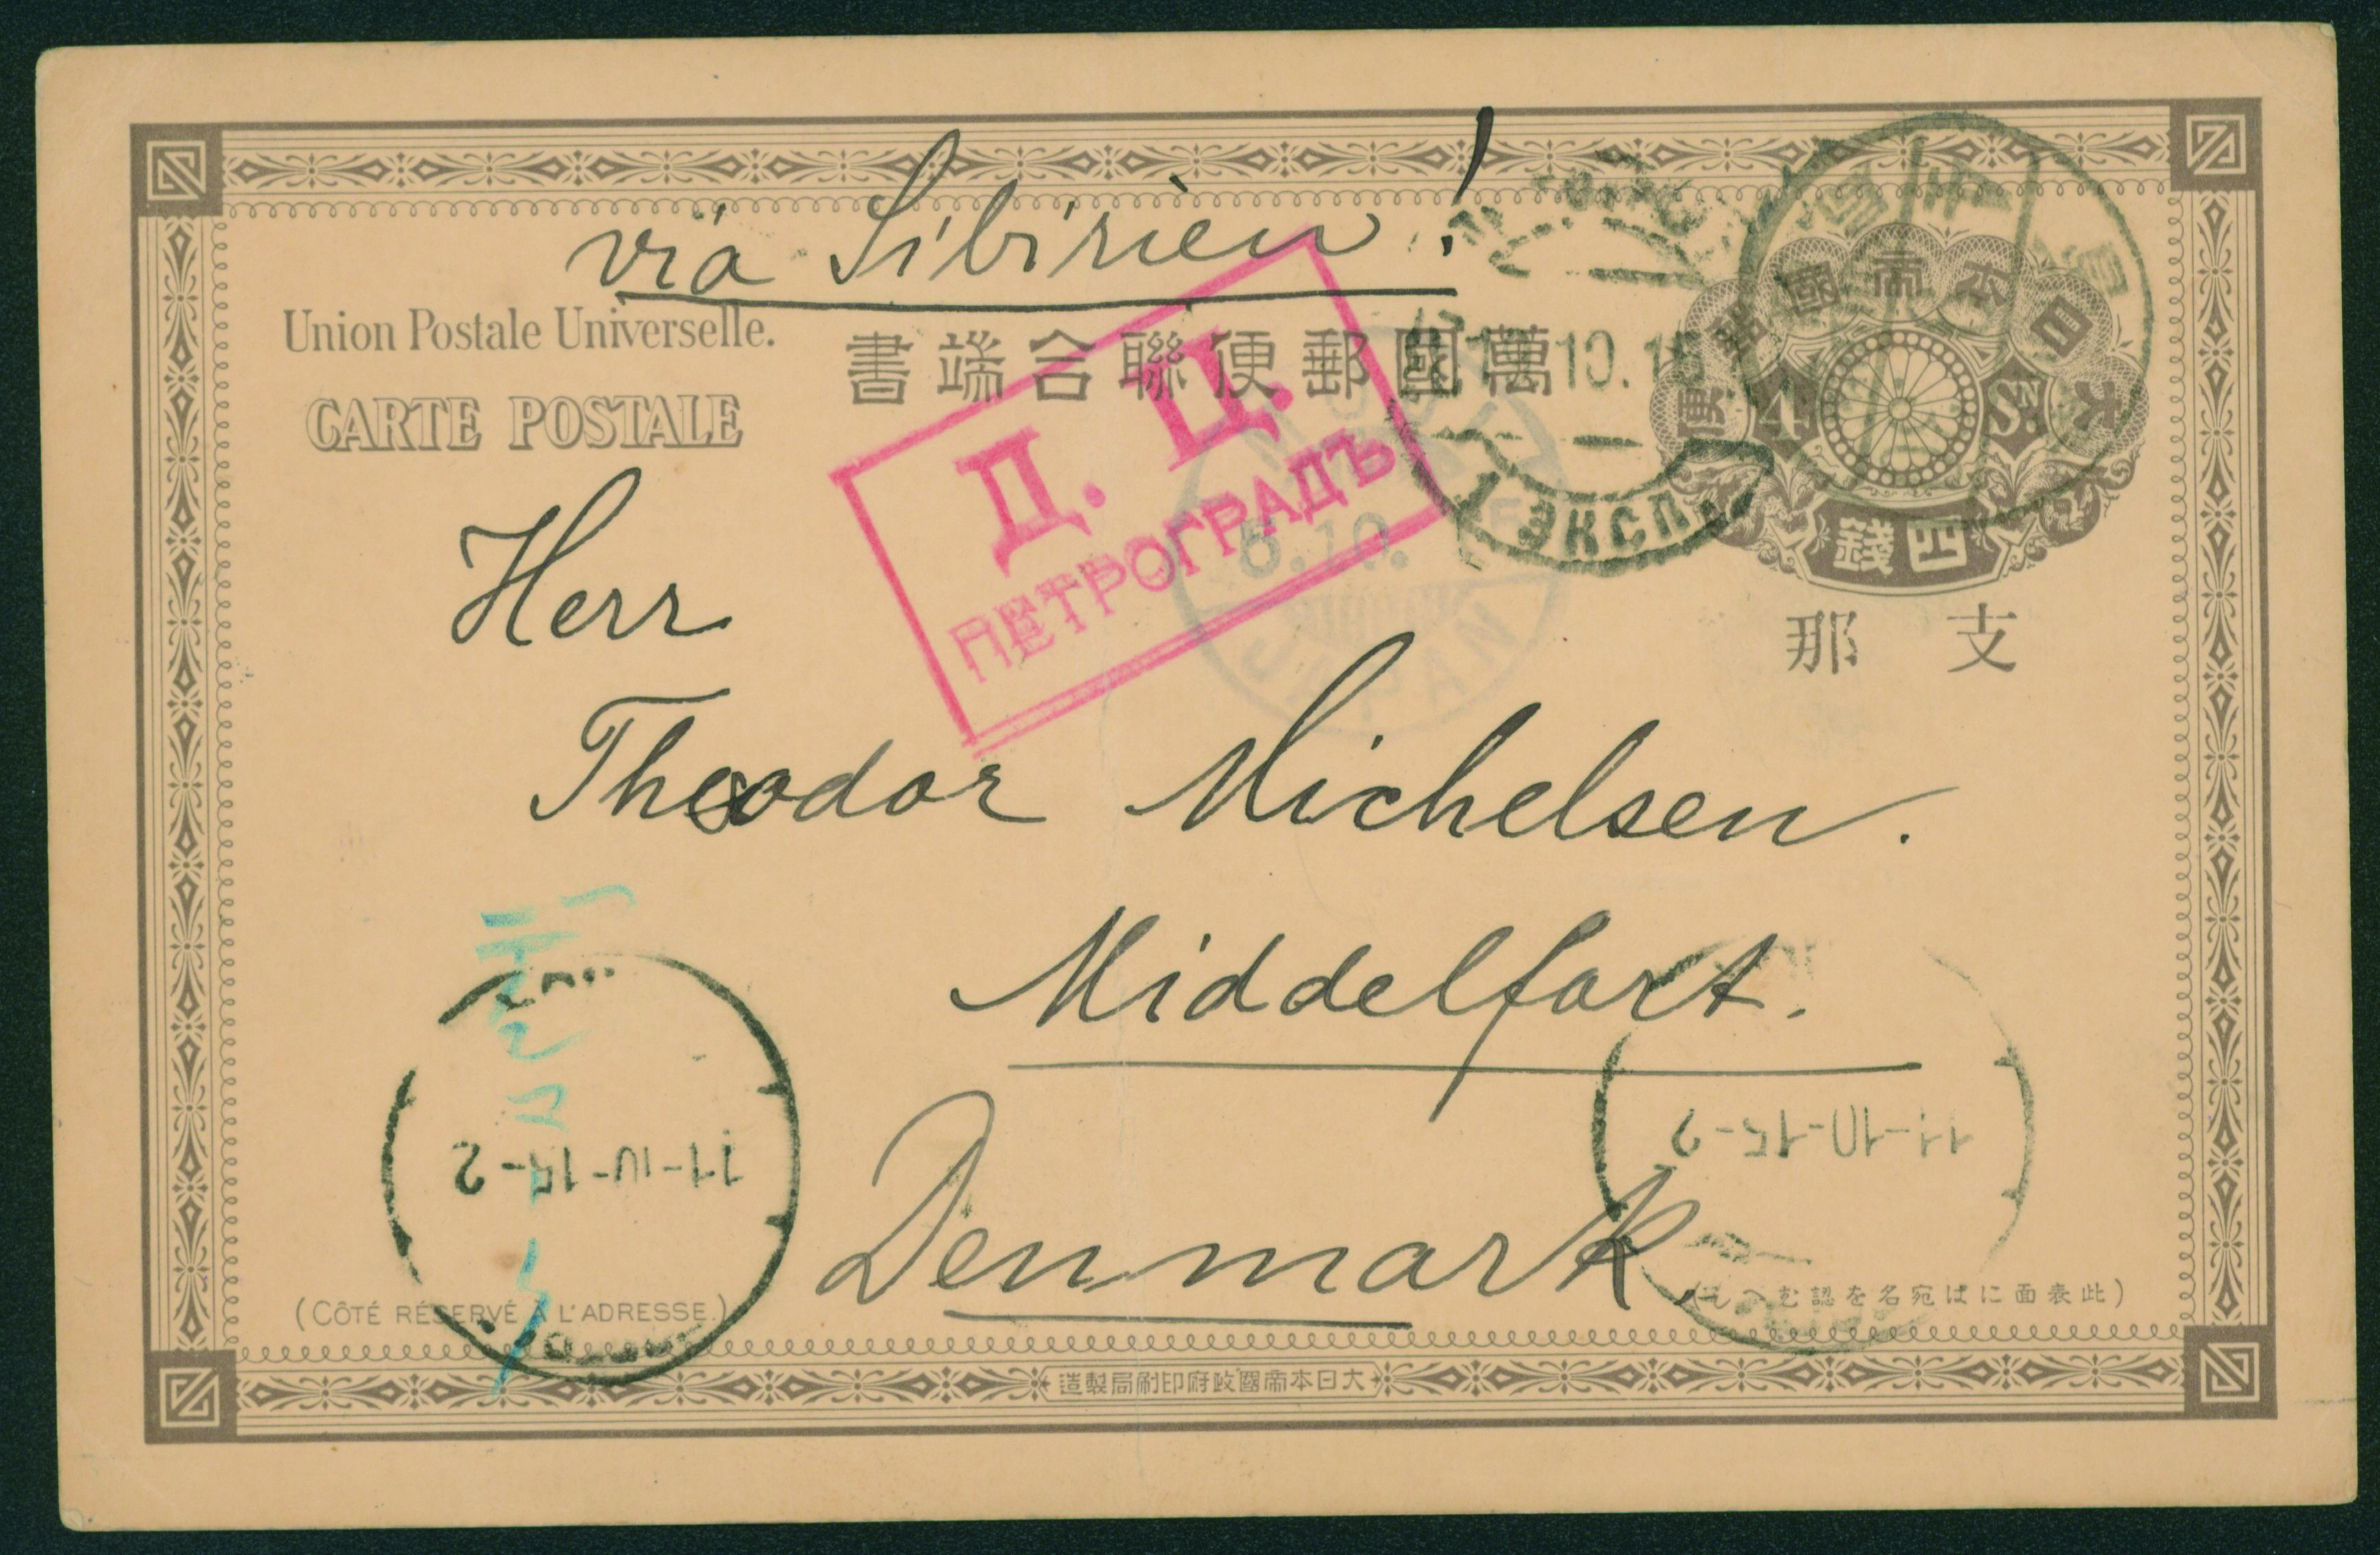 via Sibirien!
Union Postale Universelle.
書端合聯便郵國萬
CARTE POSTALE
大日本帝國郵便
4
SN
S
錢四
那支
Д. Ц.
ПЕТРОГРАДЪ
10.15
1 ЭКСП.
6.10.
JAPAN
Herr
Theodor Michelsen.
Middelfart.
Denmark
11-10-15-2
11-10-15-2
(CÔTÉ RÉSERVÉ À L'ADRESSE.)
(此表面にはば宛名を認むへし)
造製局刷印府政國帝本日大